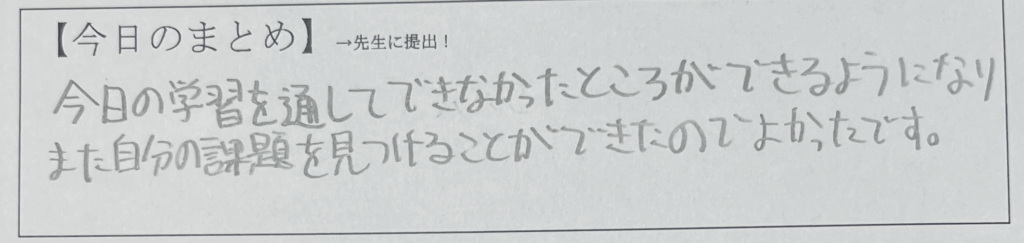 【今日のまとめ】 →先生に提出！
今日の学習を通してできなかったところができるようになり
また自分の課題を見つけることができたのでよかったです。